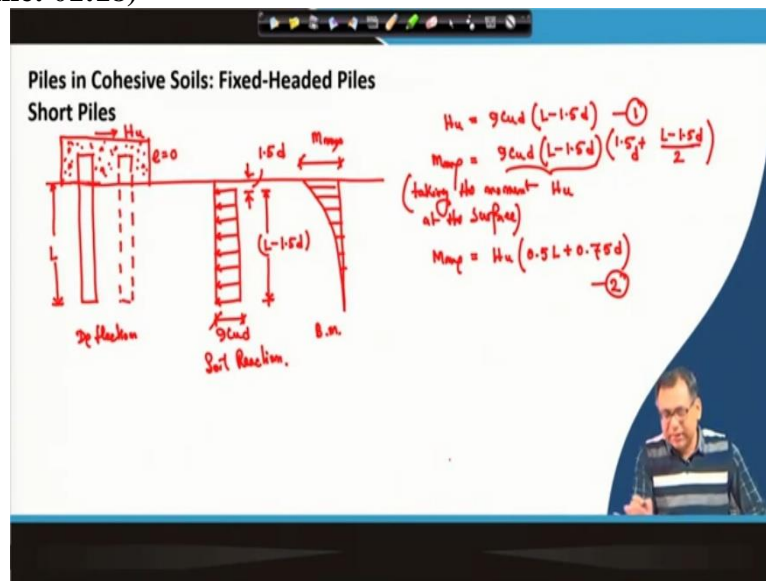 Piles in Cohesive Soils: Fixed-Headed Piles
Short Piles
Hu
e=0
L
Deflection
1.5d
(L-1.5d)
9cud
Soil Reaction.
Mmax
B.M.
Hu = 9cud (L-1.5d) — ①
Mmax = 9cud (L-1.5d) (1.5d + L-1.5d / 2)
(taking the moment Hu
at the surface)
Mmax = Hu (0.5L + 0.75d)
— ②